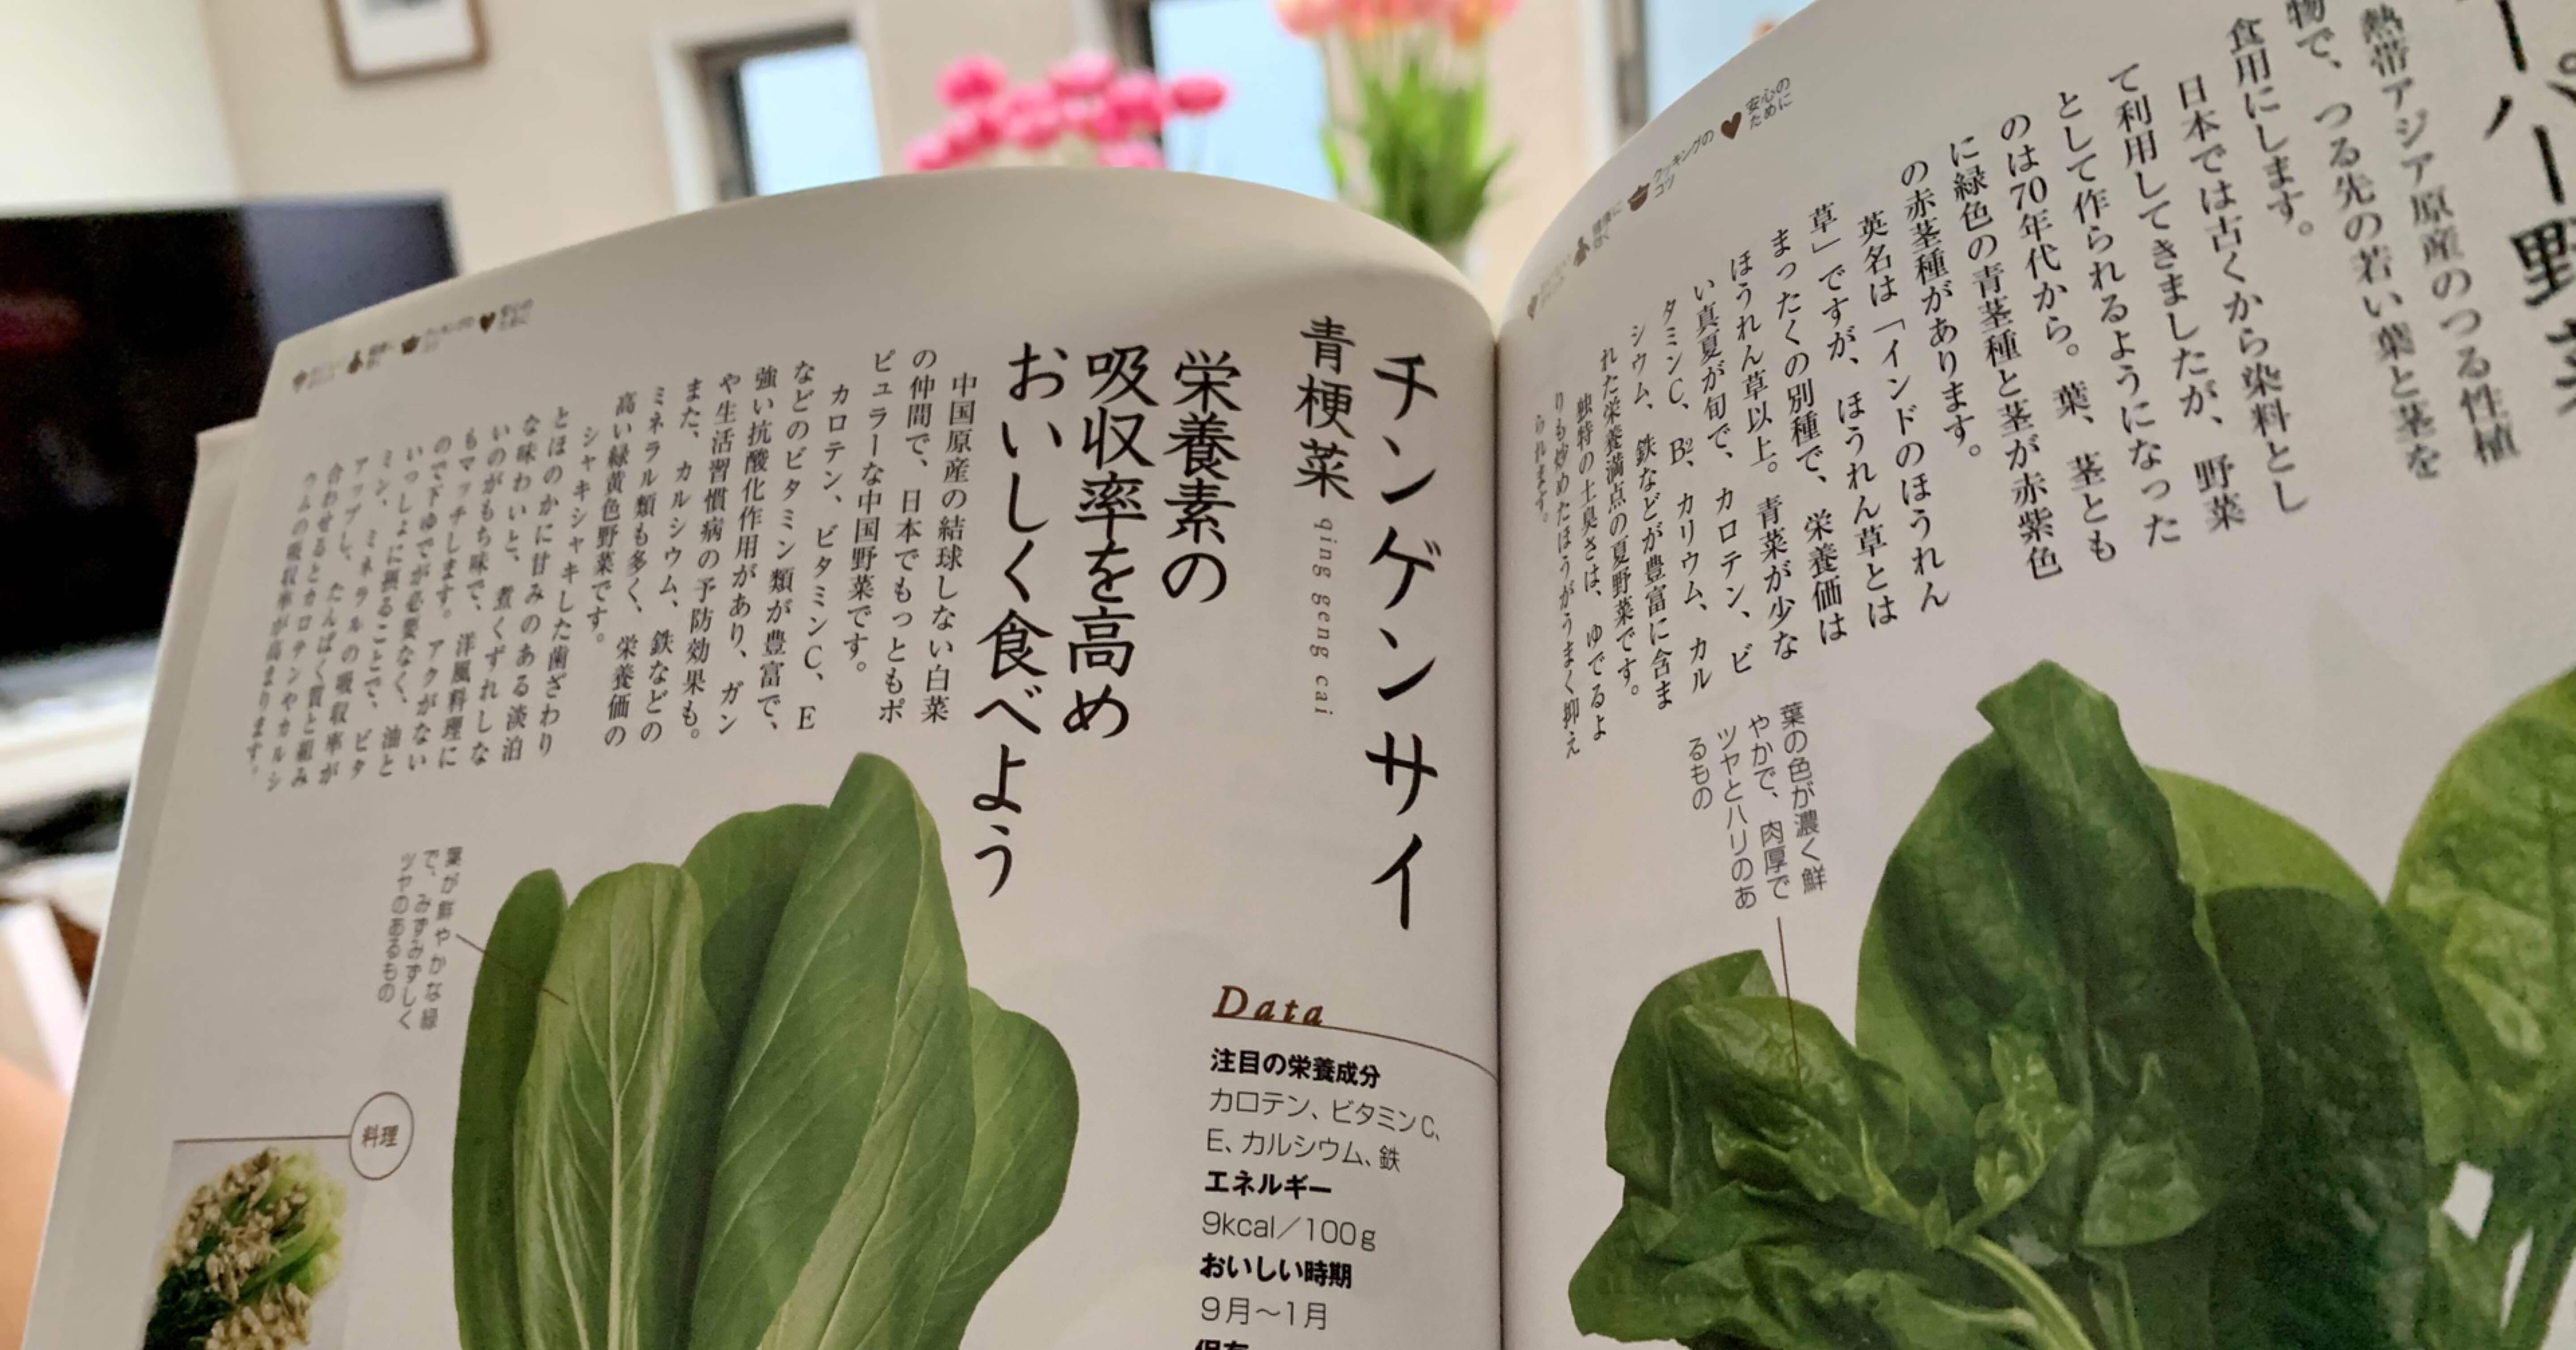 ーパー野菜
熱帯アジア原産のつる性植
物で、つる先の若い葉と茎を
食用にします。
日本では古くから染料とし
て利用してきましたが、野菜
として作られるようになった
のは70年代から。葉、茎とも
に緑色の青茎種と茎が赤紫色
の赤茎種があります。
英名は「インドのほうれん
草」ですが、ほうれん草とは
まったくの別種で、栄養価は
ほうれん草以上。青菜が少な
い真夏が旬で、カロテン、ビ
タミンC、B₂、カリウム、カル
シウム、鉄などが豊富に含ま
れた栄養満点の夏野菜です。
独特の土臭さは、ゆでるよ
りも炒めたほうがうまく抑え
られます。
クッキングの
コツ
安心の
ために
葉の色が濃く鮮
やかで、肉厚で
ツヤとハリのあ
るもの
チンゲンサイ
青梗菜 qing geng cai
栄養素の
吸収率を高め
おいしく食べよう
中国原産の結球しない白菜
の仲間で、日本でもっともポ
ピュラーな中国野菜です。
カロテン、ビタミンC、E
などのビタミン類が豊富で、
強い抗酸化作用があり、ガン
や生活習慣病の予防効果も。
また、カルシウム、鉄などの
ミネラル類も多く、栄養価の
高い緑黄色野菜です。
シャキシャキした歯ざわり
とほのかに甘みのある淡泊
な味わいと、煮くずれしな
いのがもち味で、洋風料理に
もマッチします。アクがない
ので下ゆでが必要なく、油と
いっしょに摂ることで、ビタ
ミン、ミネラルの吸収率が
アップし、たんぱく質と組み
合わせるとカロテンやカルシ
ウムの吸収率が高まります。
葉が鮮やかな緑
で、みずみずしく
ツヤのあるもの
料理
Data
注目の栄養成分
カロテン、ビタミンC、
E、カルシウム、鉄
エネルギー
9kcal／100g
おいしい時期
9月〜1月